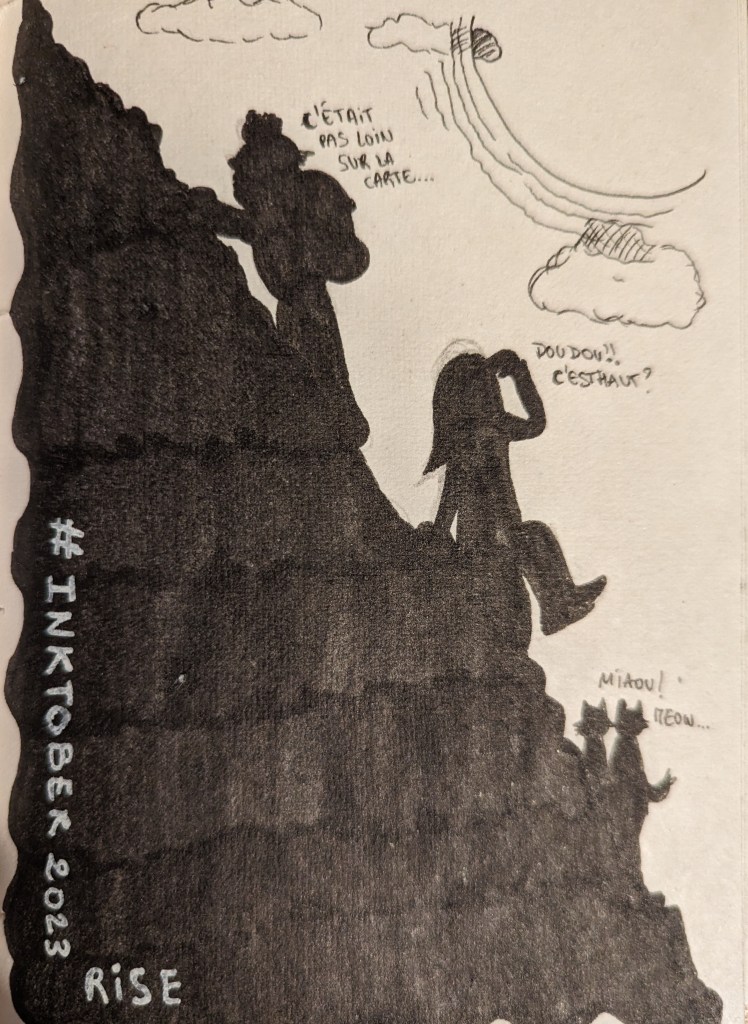 C'ÉTAIT
PAS LOIN
SUR LA
CARTE...
DOUDOU!!
C'EST HAUT?
MIAOU!
MEOW...
# INKTOBER 2023
RISE